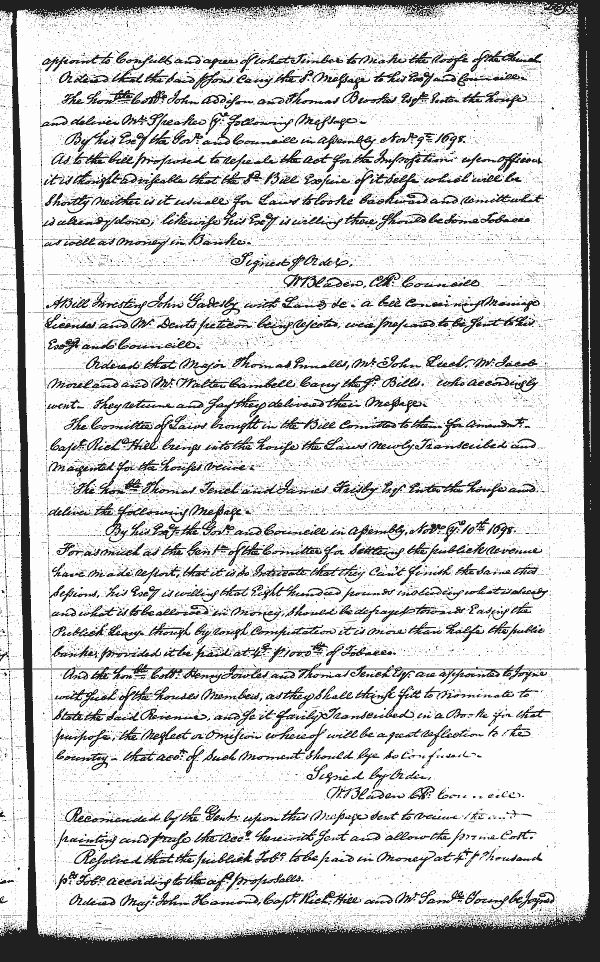 appoint to Consult and agree of what Timber to Make the Roofe of the Church
Ordered that the said psons Carry the sd. Message to his Excy and Councill.
The honble Collo. John Addison and Thomas Brookes Esqrs. Enter the house
and deliver Mr. Speaker ye. following Message -
By his Excy the Govr. and Councill in Assembly Novr. 9th 1698.
As to the bill proposed to repeale the Act for the Imposition upon officers
it is thought advisable that the sd. Bill Expire of it Selfe which will be
Shortly neither is it usuall for Laws to looke backward and remitt what
is already done, likewise his Excy is willing there Should be Some Tobacco
as well as money in Banke.
Signed p Order,
W Bladen, Clk. Councill
A Bill Investing John Gadesby with Land &c - a bill Concerning Marriage
Licenses and Mr. Dents peticon being rejected, were prepared to be Sent to his
Excy and Councill.
Ordered that Major Thomas Ennalls, Mr. John Leech, Mr. Jacob
Moreland and Mr. Walter Cambell Carry the sd. Bills. who accordingly
went - they returne and Say they delivered their Message.
The Comittee of Laws brought in the Bill Comitted to them for Amendmt.
Capt. Richd. Hill brings into the house the Laws newly Transcribed and
Margented for the houses veiwe.
The honble Thomas Tench and James Frisby Esqr. Enter the house and
deliver the following Message.
By his Excy. the Govr. and Councill in Assembly, Novbr. ye. 10th 1698.
For as much as the Gentn. of the Comittee for Settling the publick Revenue
have made report, that it is so Intricate that they Can't finish the same this
Sessions, his Excy is willing that Eight hundred pounds including what is already
and what is to be allowed in Money, Should be defrayed towards Easing the
Publick Leavy though by rough Computation it is more than halfe the public
banke, provided it be paid at 4s. p 1000lb of Tobacco.
And the honble Collo. Henry Jowles and Thomas Tench Esqr. are appointed to Joyne
with Such of the houses Members, as they Shall think fitt to nominate to
State the Said Revenue, and Se it fairly Transcribed in a Booke for that
purpose, the Neglect or Omission whereof will be a great reflection to the
Country - that acct. of Such Moment Should lye so Confused -
Signed by Order,
W Bladen Clk. Councill.
Recomended by the Gentn. upon this Message Sent to veiwe the
painting and praise the Acct. herewith Sent and allow the prime Cost.
Resolved that the publick Tobo. to be paid in Money at p thousand
pd. Tobo. according to the afd. proposalls.
Ordered Majr. John Hamond, Capt. Richd. Hill and Mr. Samll. Young be Joyned